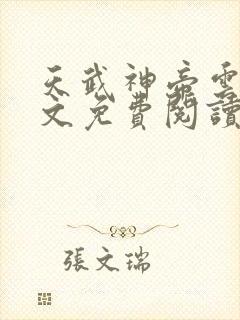 天武神帝雲
文免費閱讀
張文瑞